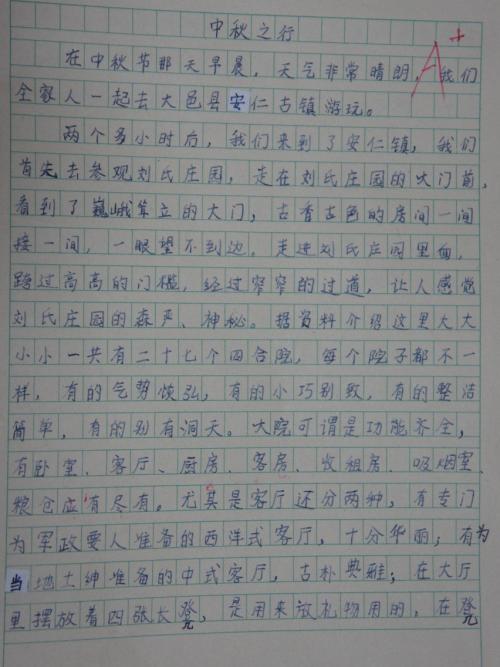 中秋之行
A+
在中秋节那天早晨，天气非常晴朗，我们
全家人一起去大邑县安仁古镇游玩。
两个多小时后，我们来到了安仁镇，我们
首先去参观刘氏庄园，走在刘氏庄园的大门前，
看到了巍峨耸立的大门，古香古色的房间一间
接一间，一眼望不到边。走进刘氏庄园里面，
踏过高高的门槛，经过窄窄的过道，让人感觉
刘氏庄园的森严、神秘。据资料介绍这里大大
小小一共有二十七个四合院，每个院子都不一
样，有的气势恢弘，有的小巧别致，有的整洁
简单，有的别有洞天。大院可谓是功能齐全，
有卧室、客厅、厨房、客房、收租房、吸烟室、
粮仓应有尽有。尤其是客厅还分两种，有专门
为军政要人准备的西洋式客厅，十分华丽；有为
当地土绅准备的中式客厅，古朴典雅；在大厅
里摆放着四张长凳，是用来放礼物用的，在凳